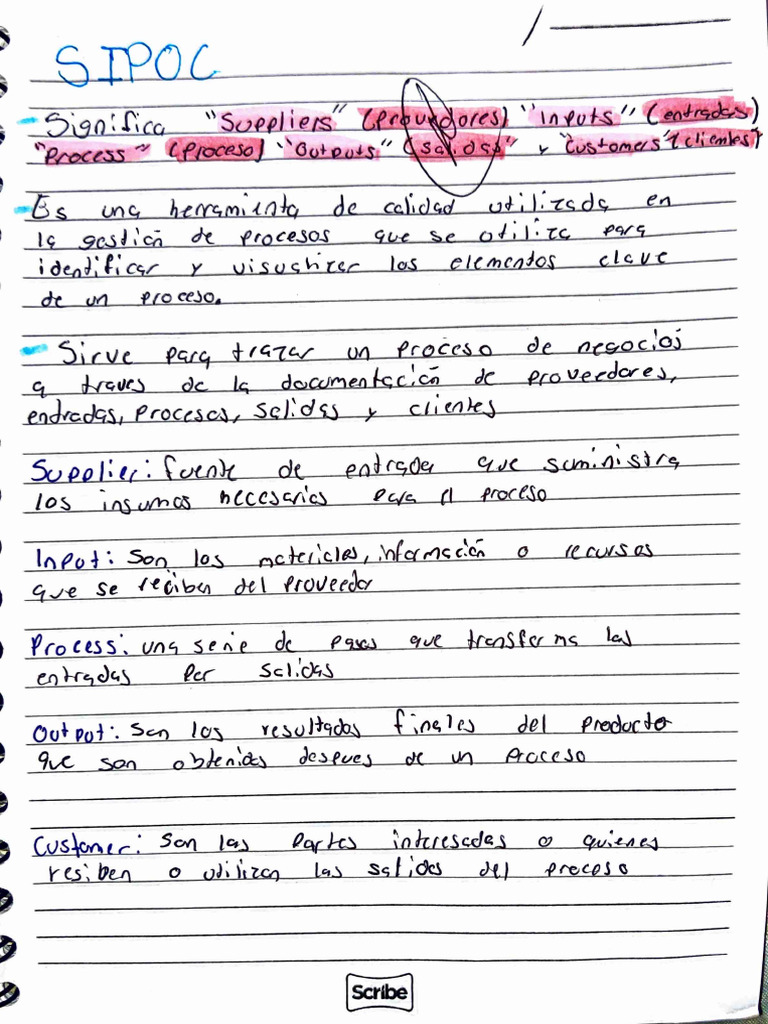 SIPOC
- Significa "Suppliers" (proveedores) "Inputs" (entradas)
"Process" (proceso) "Outputs" (salidas" y "Customers" (clientes)
- Es una herramienta de calidad utilizada en
la gestión de procesos que se utiliza para
identificar y visualizar los elementos clave
de un proceso.
- Sirve para trazar un proceso de negocios
a traves de la documentación de proveedores,
entradas, procesos, salidas y clientes
Supplier: fuente de entrada que suministra
los insumos necesarios para el proceso
Input: Son los materiales, información o recursos
que se reciben del proveedor
Process: una serie de pasos que transforma las
entradas por salidas
Output: Son los resultados finales del producto
que son obtenidos despues de un proceso
Customer: Son las partes interesadas o quienes
resiben o utilizan las salidas del proceso
Scribe